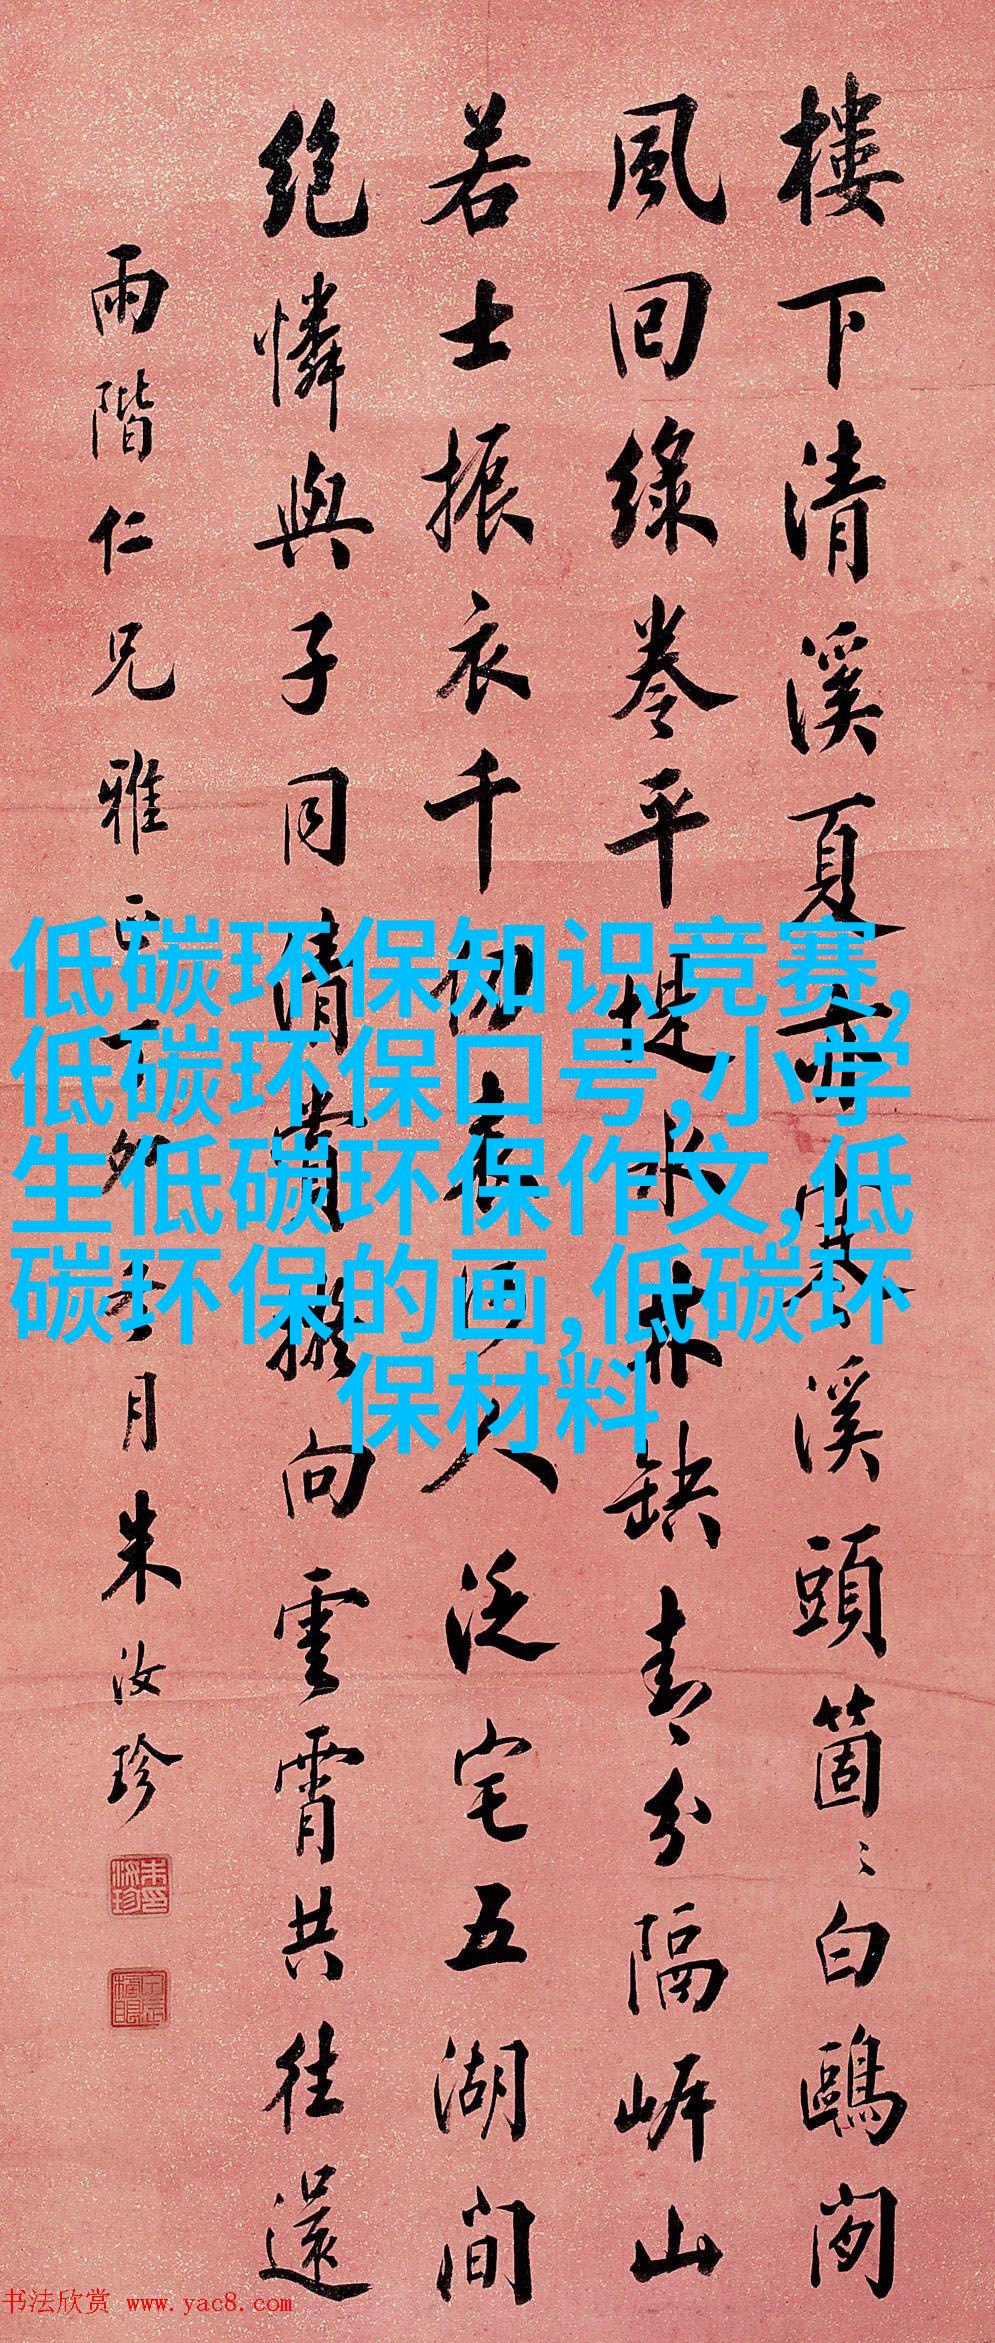 樓下清溪夏亦寒溪頭箇〻白鷗閑
風回綠卷平堤水林缺青〻分隔岸山
若士振衣千仞表何人泛宅五湖間
絶憐與子同清賞擬向雲霄共往還
雨階仁兄雅正
月朱汝珍
低碳环保知识竞赛,
低碳环保口号,小学
生低碳环保作文,低
碳环保的画,低碳环
保材料
书法欣赏 www.yac8.com